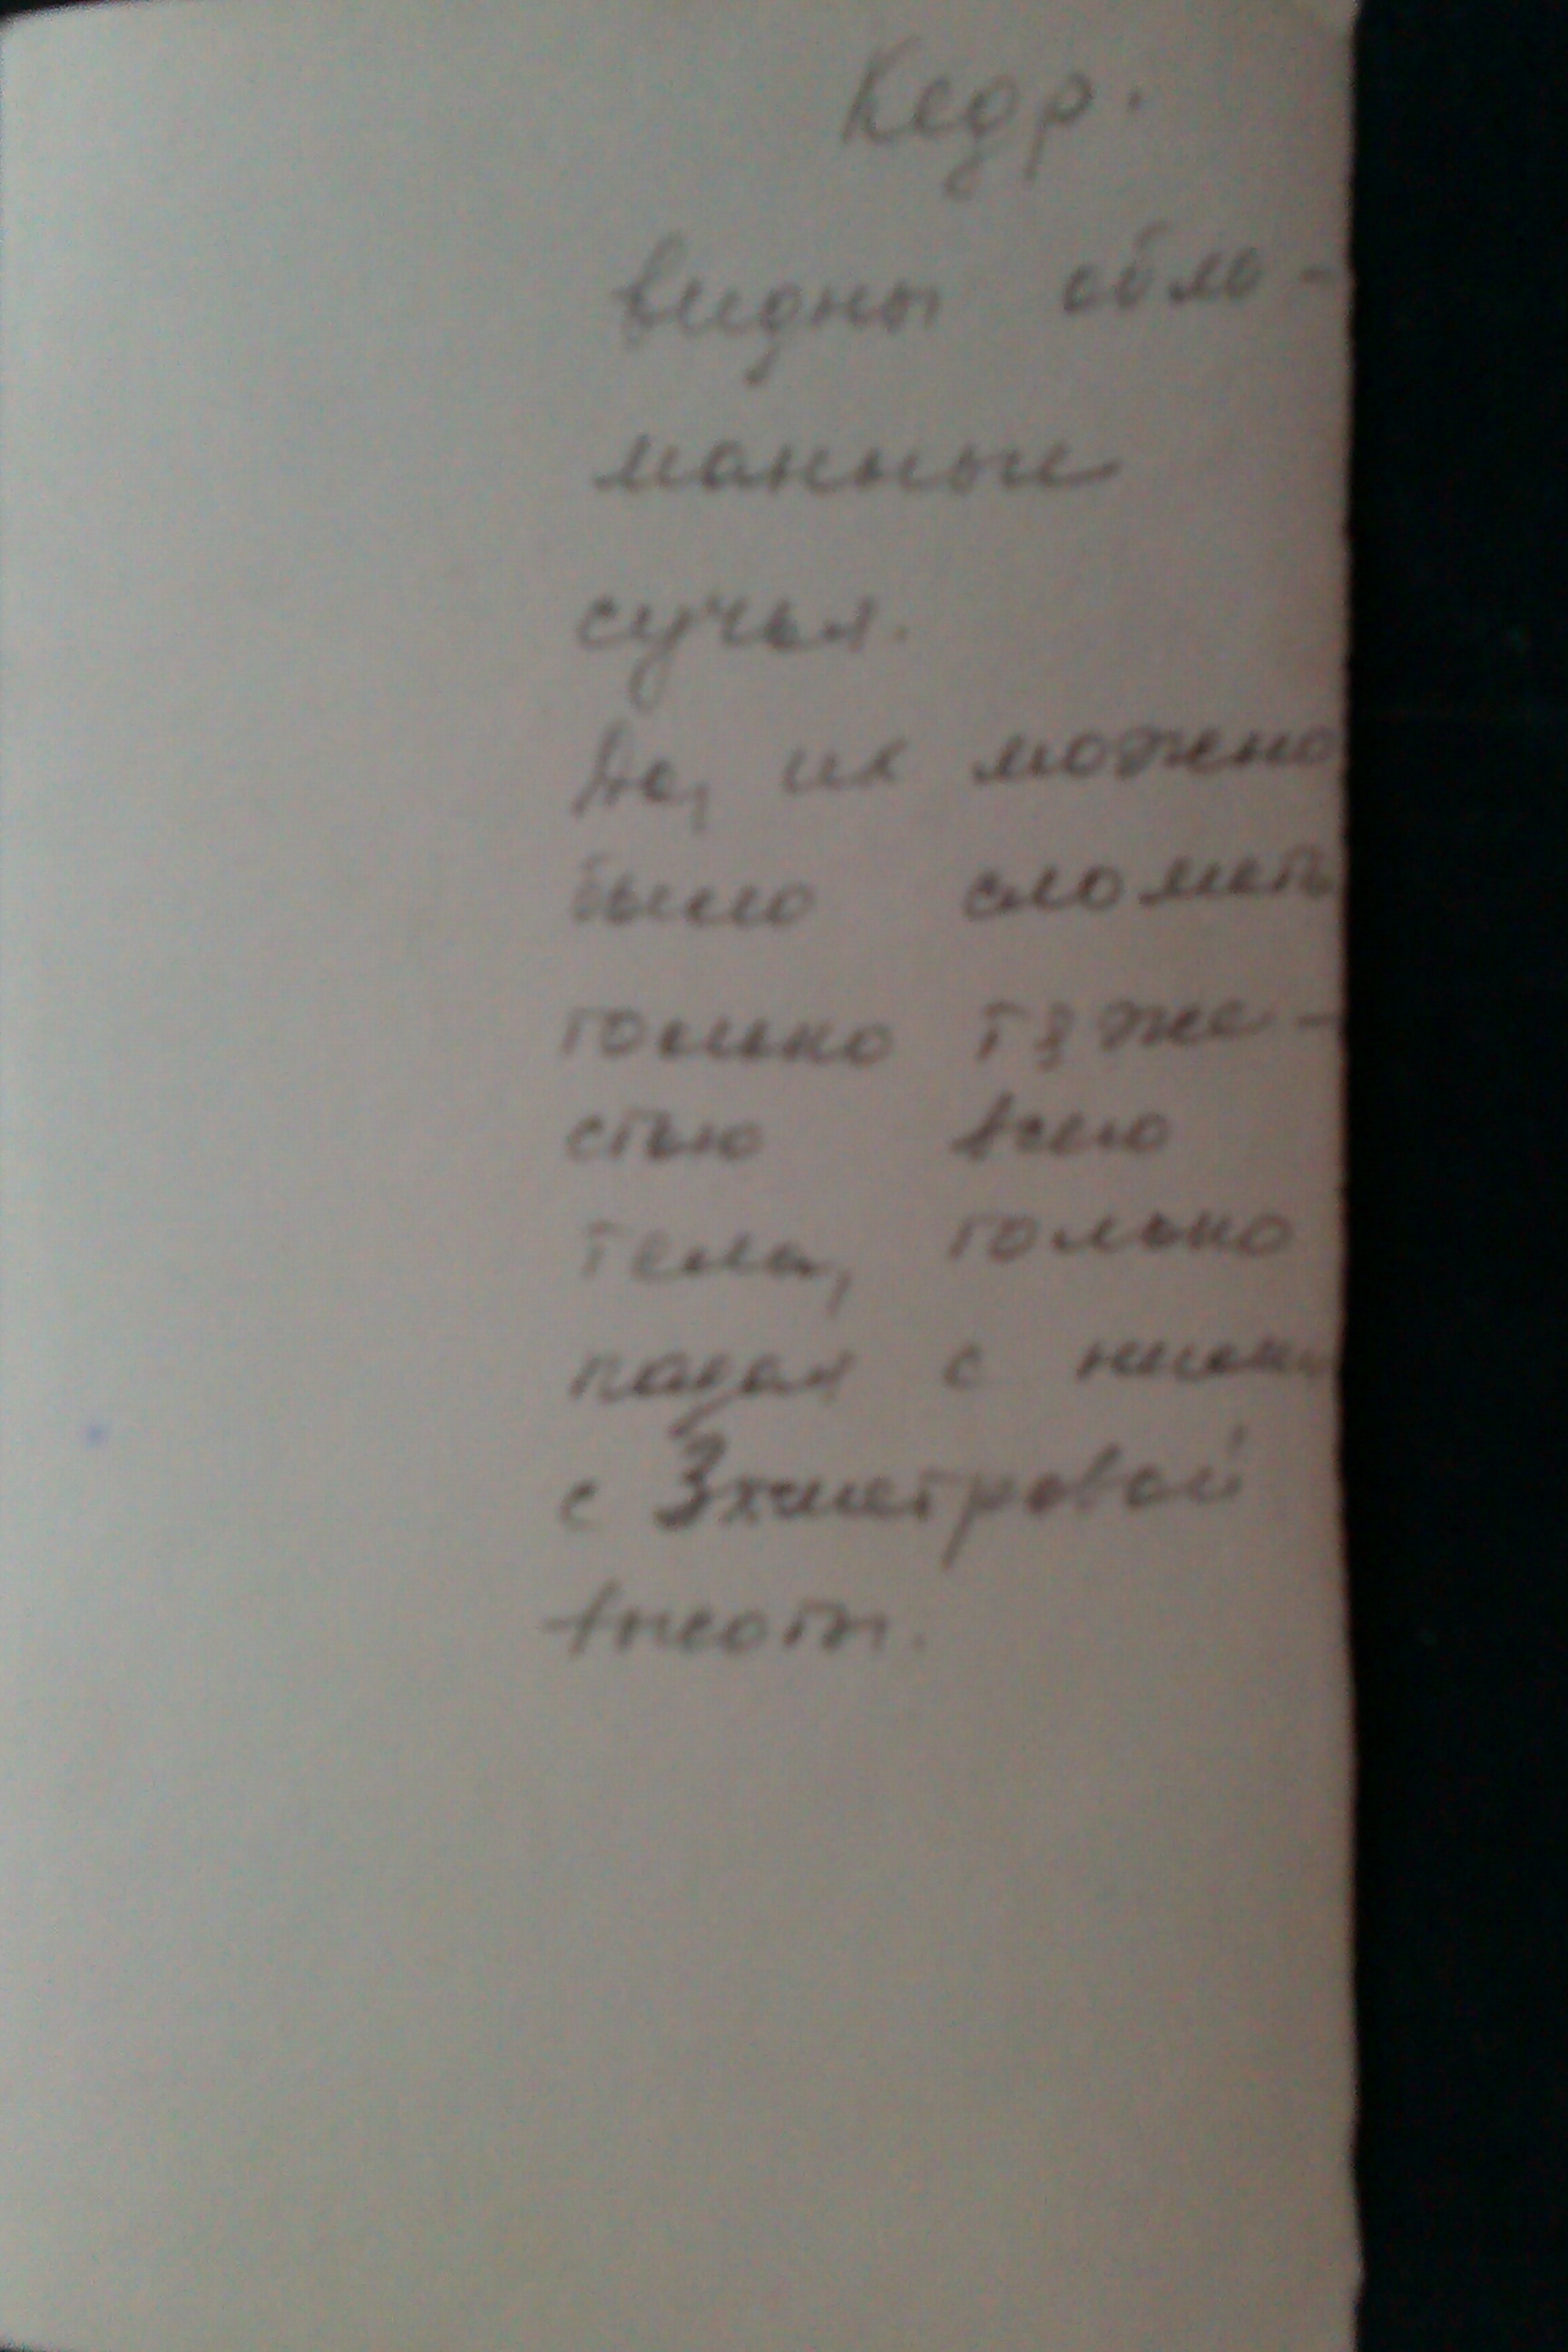 Кедр.
видны обло-
манные
сучья.
Да, их можно
было сломать
только тяже-
стью всего
тела, только
падая с ними
с 3хметровой
высоты.